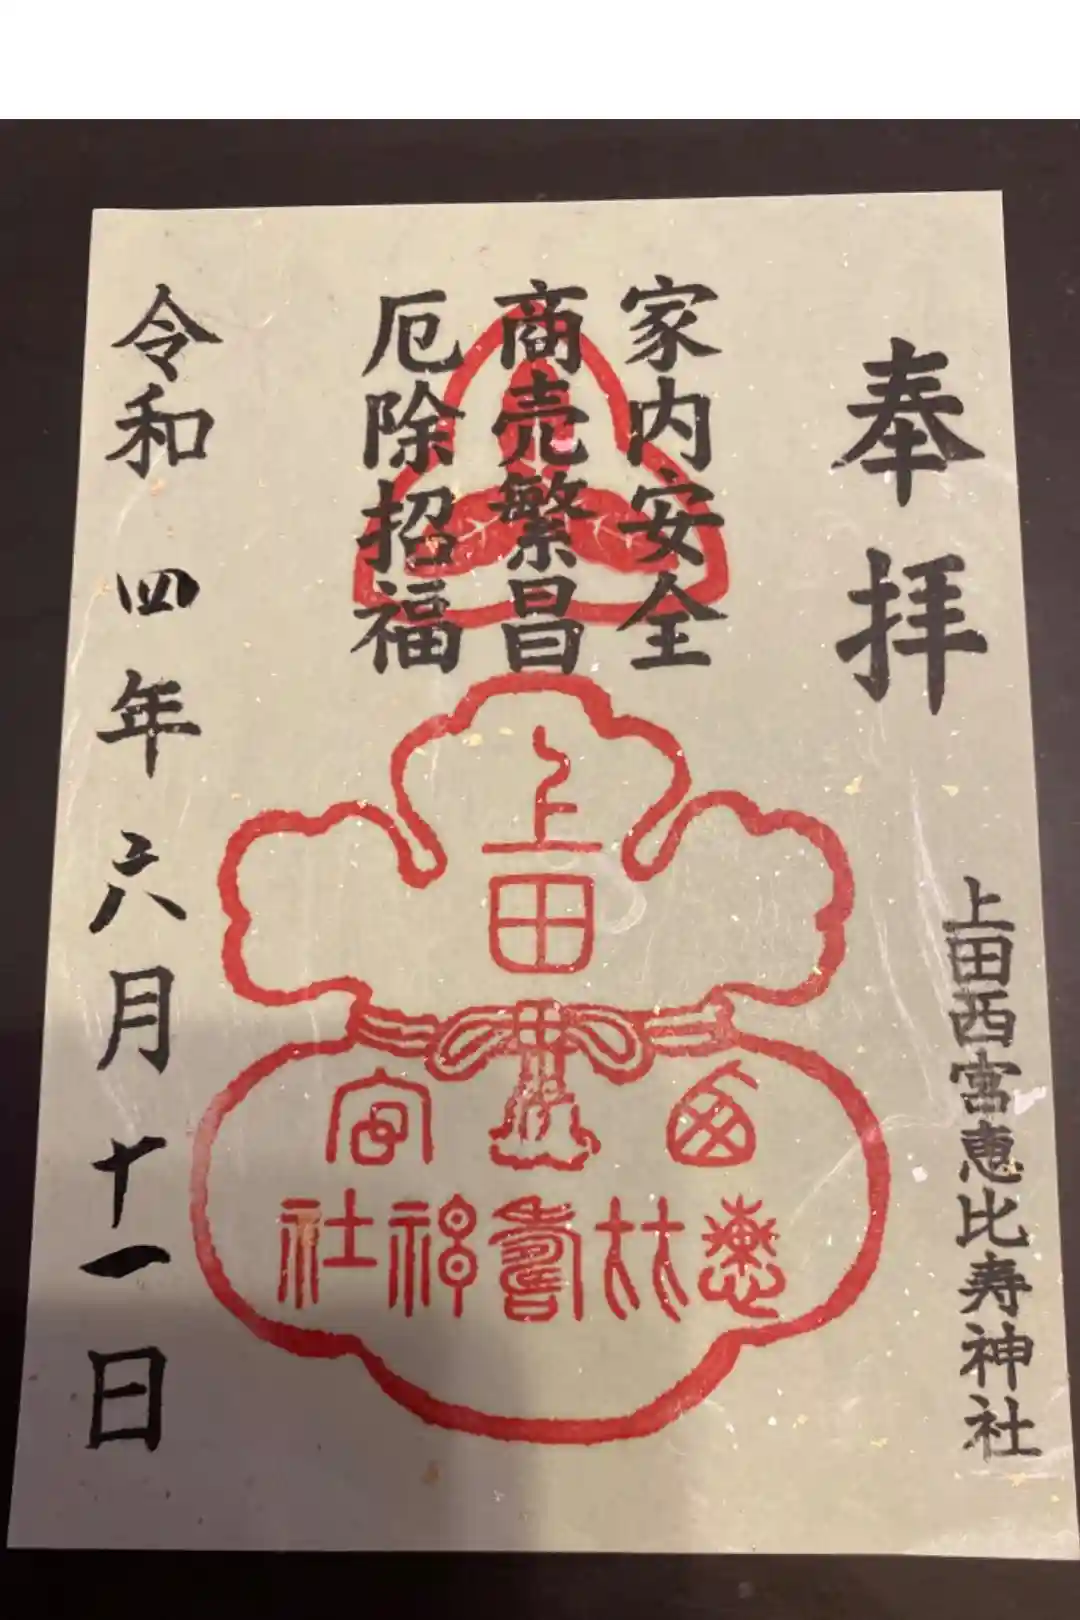 奉拝
上田西宮恵比寿神社
家内安全
商売繁昌
厄除招福
上田
西宮
恵比寿神社
令和四年六月十一日